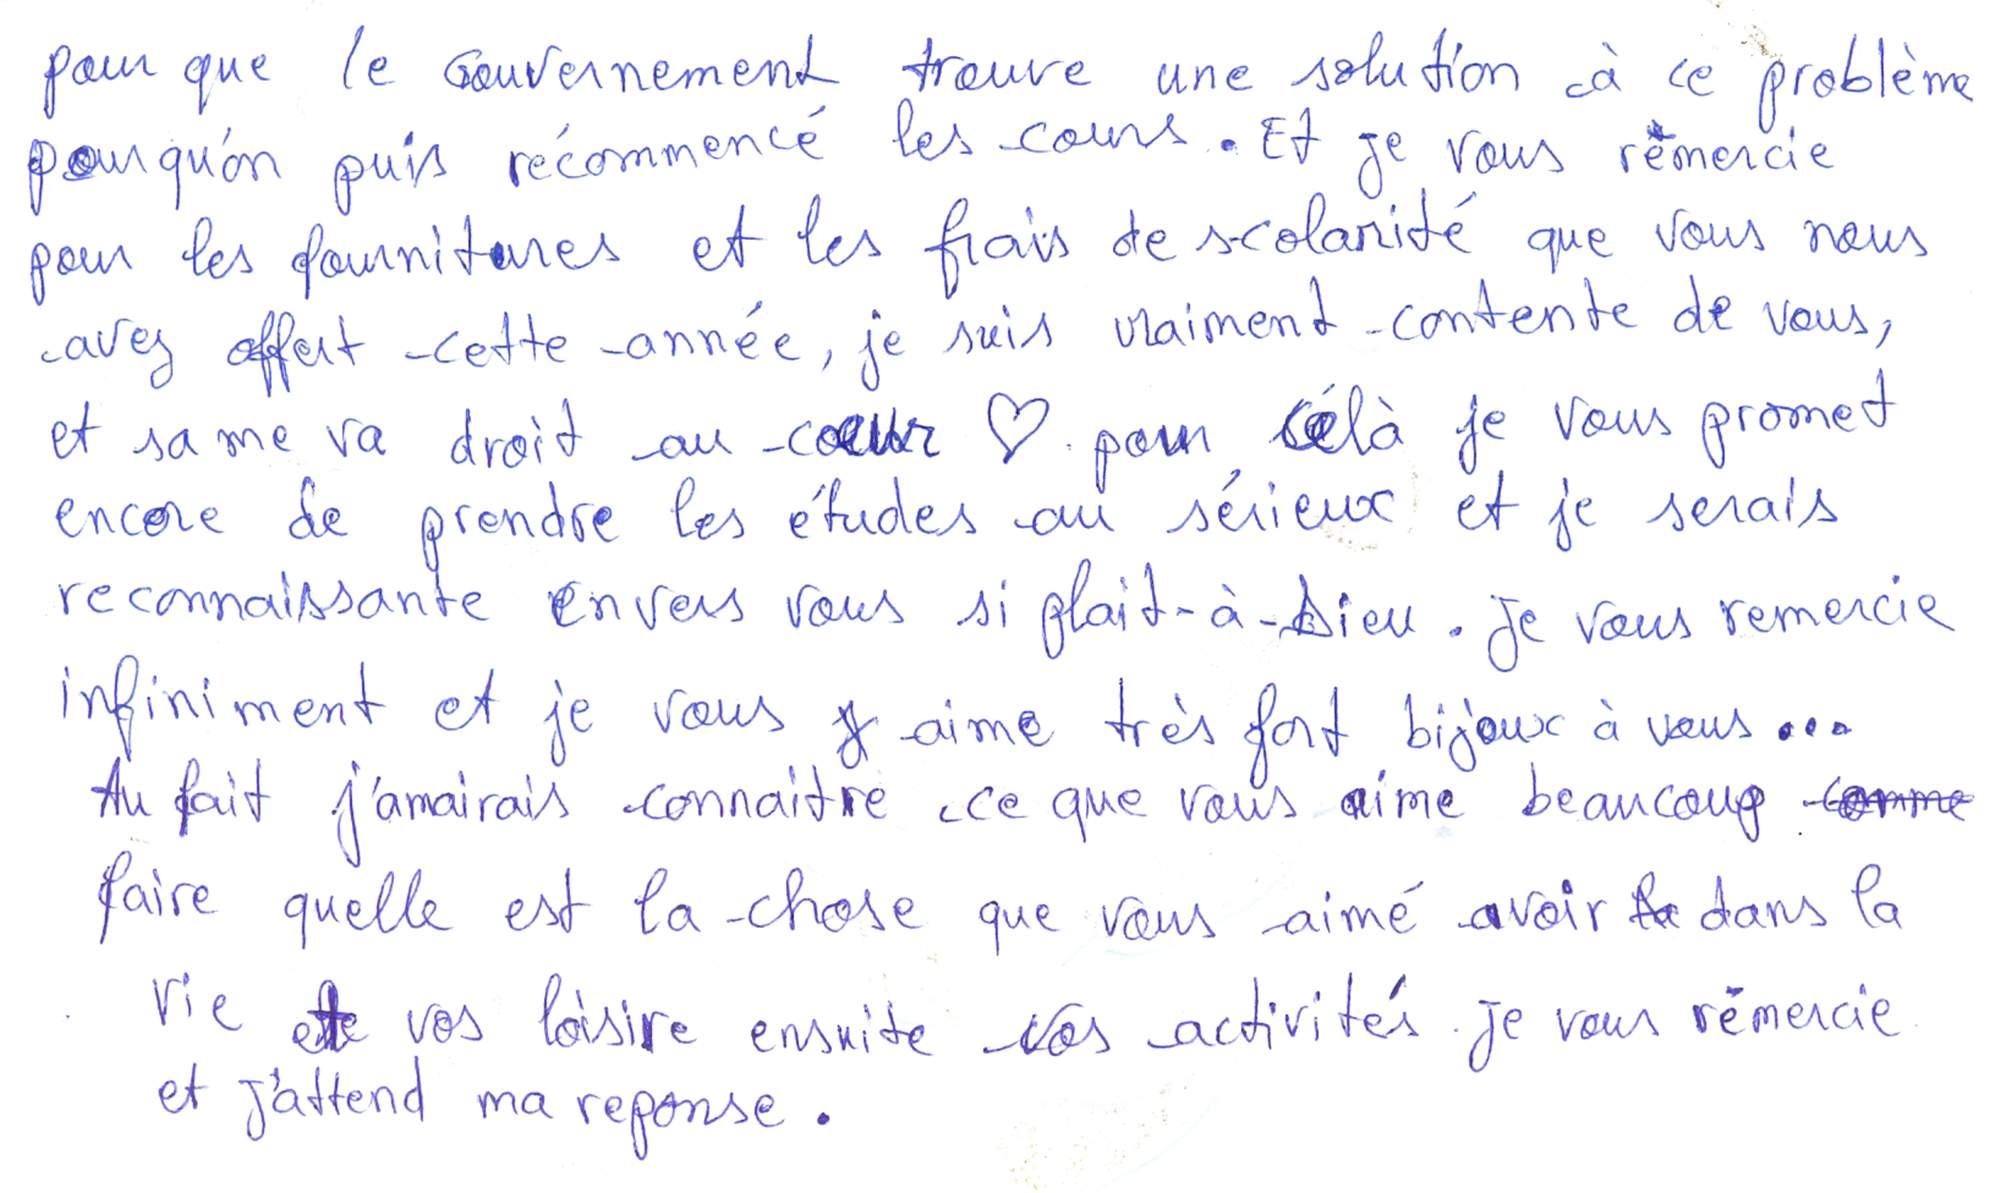 pour que le Gouvernement trouve une solution à ce problème
pourqu'on puis récommencé les cours. Et je vous rémercie
pour les fournitures et les frais de scolarité que vous nous
avez offert cette année, je suis vraiment contente de vous,
et sa me va droit au coeur ♡. pour célà je vous promet
encore de prendre les études au sérieux et je serais
reconnaissante envers vous si plait-à-Dieu. Je vous remercie
infiniment et je vous aime très fort bijoux à vous...
Au fait j'amairais connaitre ce que vous aime beaucoup comme
faire quelle est la chose que vous aimé avoir dans la
vie et vos loisire ensuite vos activités. Je vous rémercie
et j'attend ma reponse.